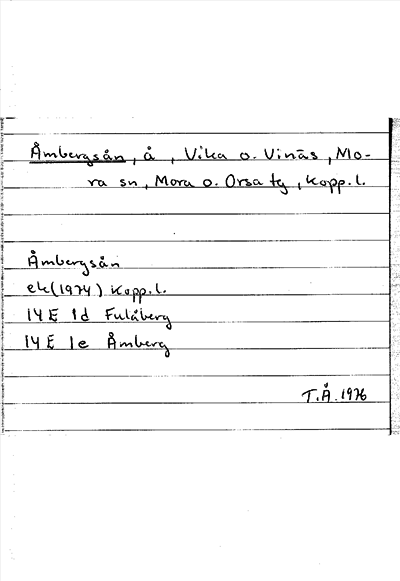 Åmbergsån, å, Vika o. Vinäs, Mo-
ra sn, Mora o. Orsa tg, Kopp. l.
Åmbergsån
ek (1974) Kopp. l.
14 E 1d Fulåberg
14 E 1e Åmberg
T.Å. 1976